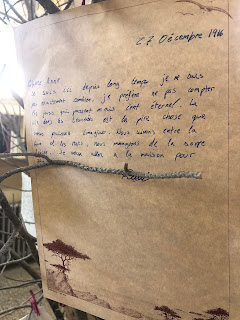 Le 7 Décembre 1916
Chère Anne
Je suis ici depuis long temps je ne sais
pas exactement combien, je préfère ne pas compter
les jours qui passent mais c'est éternel. La
vie dans les tranchées est la pire chose que
vous puissiez imaginer. Nous vivons entre la
boue et les rats, nous mangeons de la soupe
Je veux aller à la maison pour